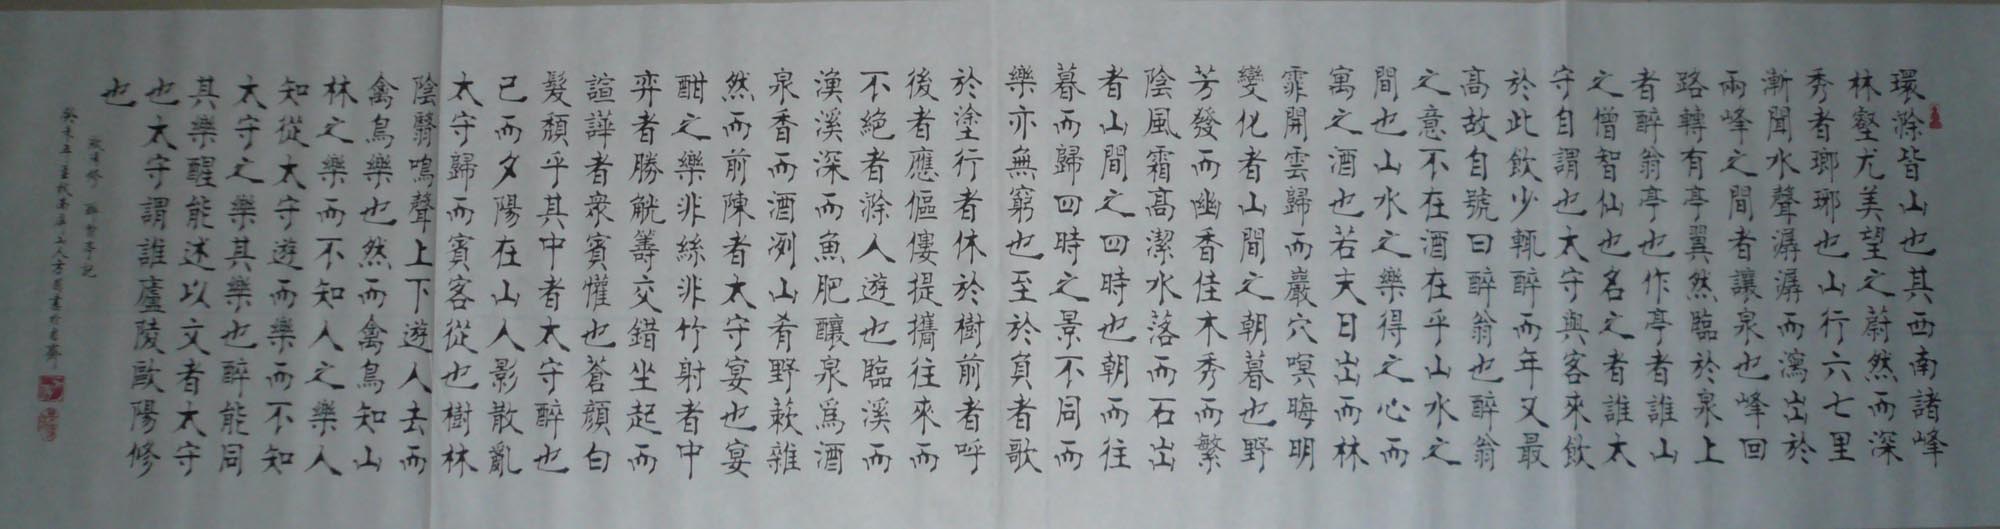 環滁皆山也其西南諸峰
林壑尤美望之蔚然而深
秀者瑯琊也山行六七里
漸聞水聲潺潺而瀉出於
兩峰之間者讓泉也峰回
路轉有亭翼然臨於泉上
者醉翁亭也作亭者誰山
之僧智仙也名之者誰太
守自謂也太守與客來飲
於此飲少輒醉而年又最
高故自號曰醉翁也醉翁
之意不在酒在乎山水之
間也山水之樂得之心而
寓之酒也若夫日出而林
霏開雲歸而巖穴暝晦明
變化者山間之朝暮也野
芳發而幽香佳木秀而繁
陰風霜高潔水落而石出
者山間之四時也朝而往
暮而歸四時之景不同而
樂亦無窮也至於負者歌
於塗行者休於樹前者呼
後者應傴僂提攜往來而
不絕者滁人遊也臨溪而
漁溪深而魚肥釀泉爲酒
泉香而酒洌山肴野蔌雜
然而前陳者太守宴也宴
酣之樂非絲非竹射者中
弈者勝觥籌交錯坐起而
諠譁者衆賓懽也蒼顏白
髮頹乎其中者太守醉也
已而夕陽在山人影散亂
太守歸而賓客從也樹林
陰翳鳴聲上下遊人去而
禽鳥樂也然而禽鳥知山
林之樂而不知人之樂人
知從太守遊而樂而不知
太守之樂其樂也醉能同
其樂醒能述以文者太守
也太守謂誰廬陵歐陽修
也
歐陽修 醉翁亭記
癸未年孟秋